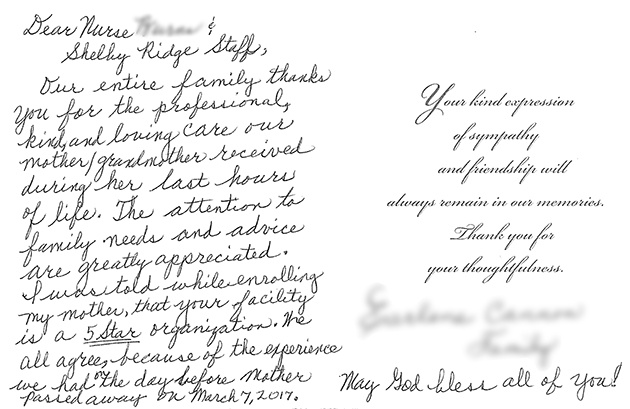 Dear Nurse &
Shelby Ridge Staff,
Our entire family thanks
you for the professional,
kind, and loving care our
mother/grandmother received
during her last hours
of life. The attention to
family needs and advice
are greatly appreciated.
I was told while enrolling
my mother, that your facility
is a 5 Star organization. We
all agree, because of the experience
we had on the day before Mother
passed away on March 7, 2017.
Your kind expression
of sympathy
and friendship will
always remain in our memories.
Thank you for
your thoughtfulness.
Family
May God bless all of you!